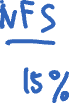 NFS
15%